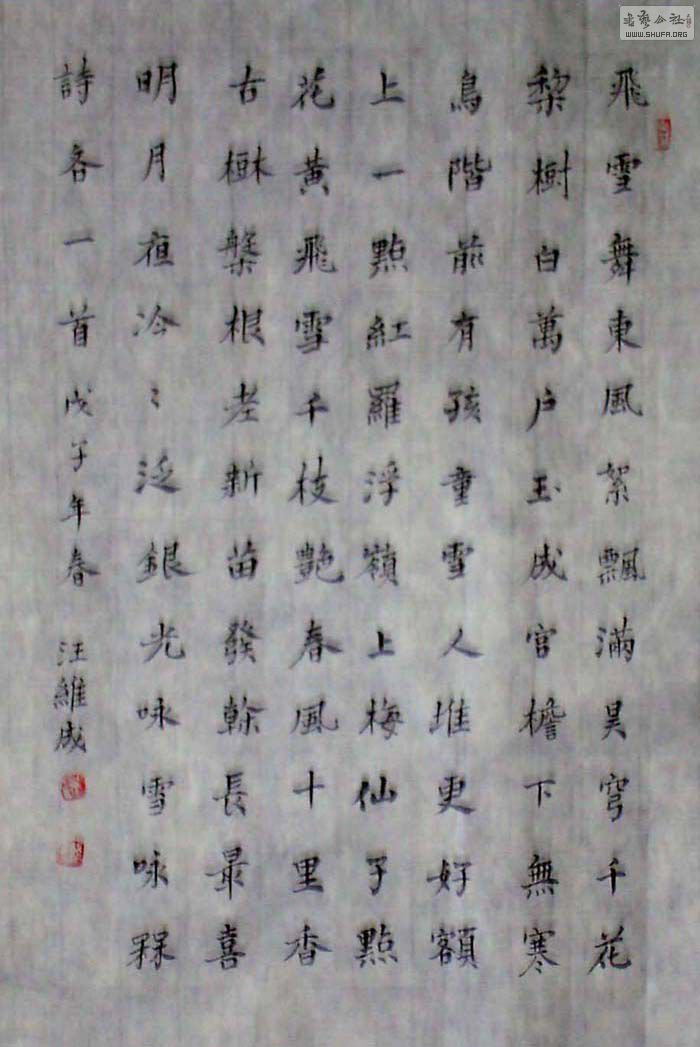 飛雪舞東風絮飄滿昊穹千花
棃樹白萬戶玉成宮檐下無寒
鳥階前有孩童雪人堆更好額
上一點紅羅浮嶺上梅仙子點
花黃飛雪千枝艷春風十里香
古槃根老新苗發榦長最喜
明月夜冷〻泛銀光咏雪咏槑
詩各一首戊子年春 汪維成
书艺公社
WWW.SHUFA.ORG